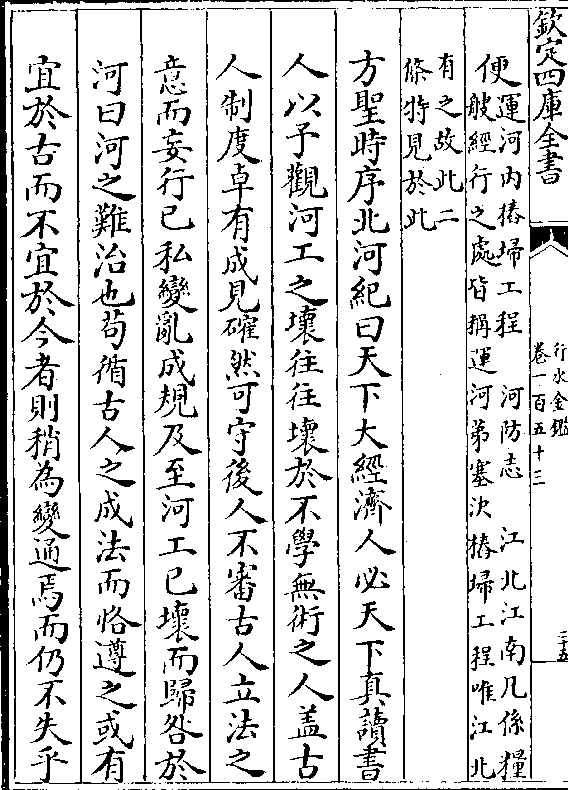 欽定四庫全書
行水金鑑
卷一百五十三
二十五
便運河内樁埽工程　河防志　江北江南凡係糧
艘經行之處皆稱運河第塞決樁埽工程唯江北
有之故此二
條特見於此
方聖時序北河紀曰天下大經濟人必天下真讀書
人以予觀河工之壞往往壞於不學無術之人蓋古
人制度卓有成見確然可守後人不審古人立法之
意而妄行已私變亂成規及至河工已壞而歸咎於
河曰河之難治也茍循古人之成法而恪遵之或有
宜於古而不宜於今者則稍為變通焉而仍不失乎